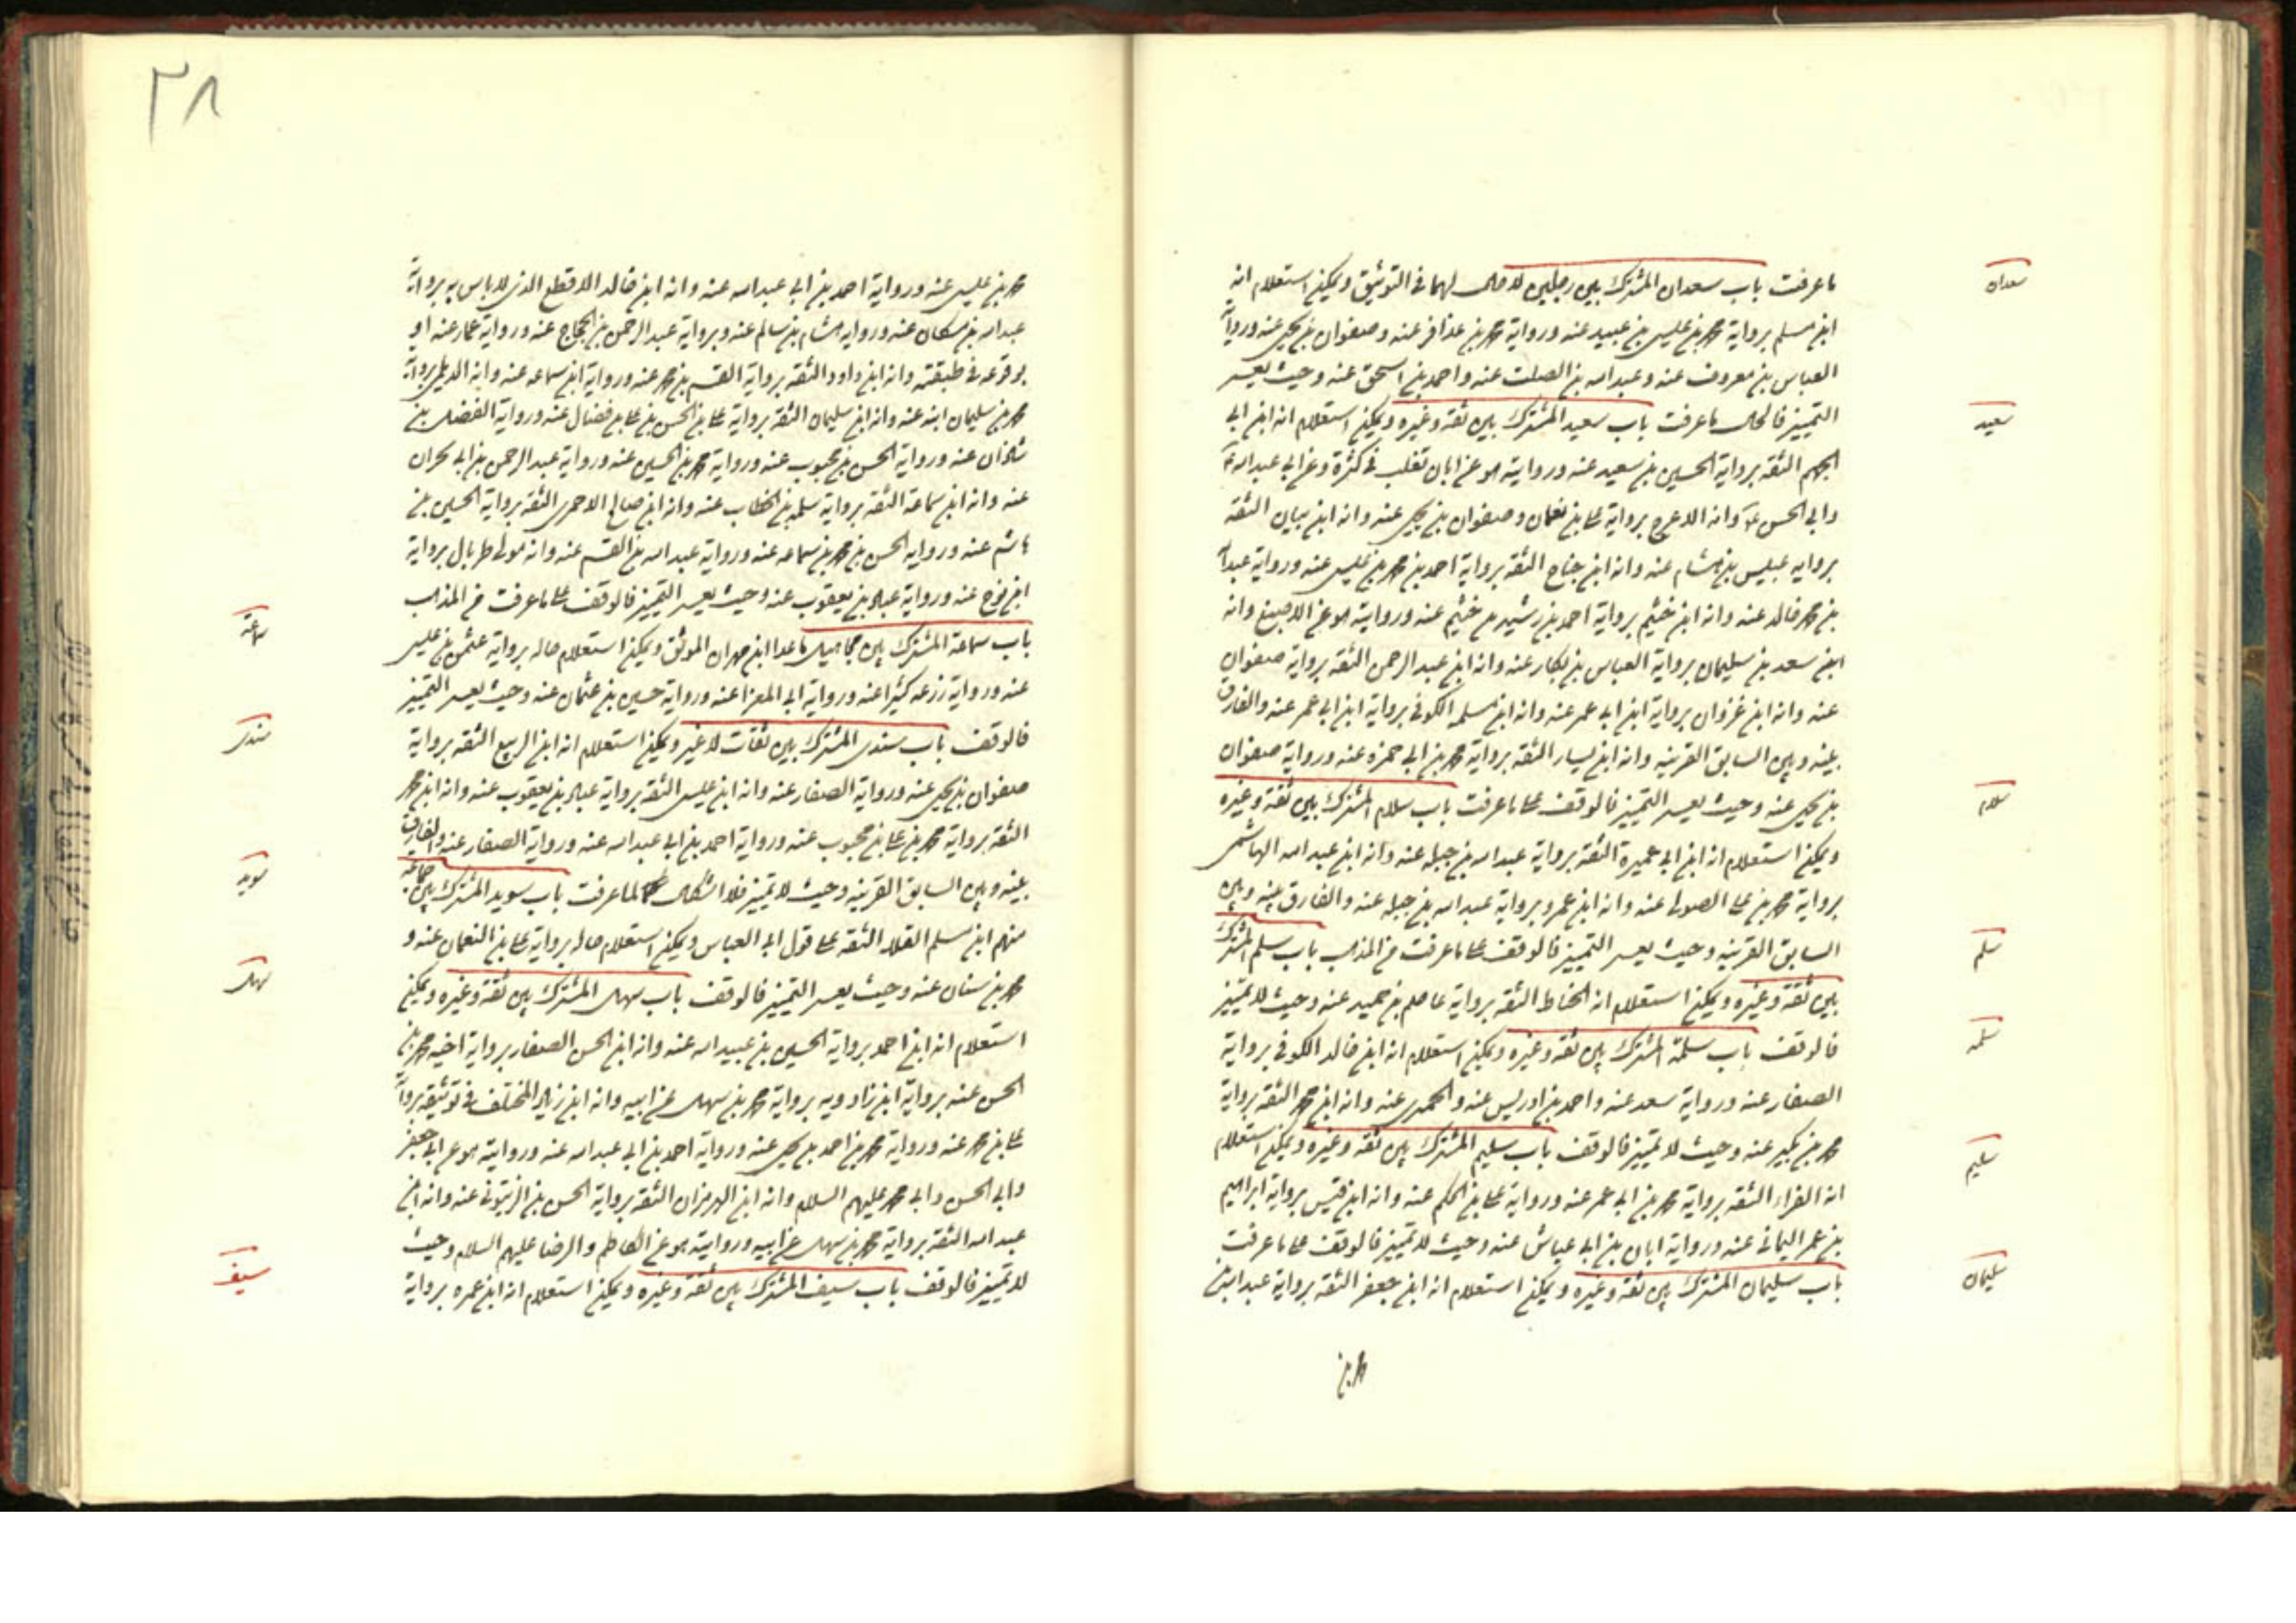 ما عرفت باب سعدان المشترك بين رجلين لا حال لهما في التوثيق ويمكن استعلام انه
ابن مسلم برواية محمد بن عيسى بن عبيد عنه ورواية محمد بن عذافر عنه وصفوان بن يحيى عنه ورواية
العباس بن معروف عنه وعبد الله بن الصلت عنه واحمد بن اسحق عنه وحيث يعسر
التمييز فالحال ما عرفت باب سعيد المشترك بين ثقة وغيره ويمكن استعلام انه ابن ابي
الجهم الثقة برواية الحسين بن سعيد عنه وروايته هو عن ابان تغلب في كثرة وعن ابي عبد الله ع
وابي الحسن ع وانه الاعرج برواية علي بن نعمان وصفوان بن يحيى عنه وانه ابن بيان الثقة
برواية عبيس بن هشام عنه وانه ابن جناح الثقة برواية احمد بن محمد بن عيسى عنه ورواية عبد الله
بن محمد خالد عنه وانه ابن خثيم برواية احمد بن رشيد بن خثيم عنه وروايته هو عن الاصبغ وانه
ابن سعد بن سليمان برواية العباس بن بكار عنه وانه ابن عبد الرحمن الثقة برواية صفوان
عنه وانه ابن غزوان برواية ابن ابي عمر عنه وانه ابن مسلمه الكوفي برواية ابن ابي عمر عنه والفارق
بينه وبين السابق القرينه وانه ابن يسار الثقه برواية محمد بن ابي حمزه عنه ورواية صفوان
بن يحيى عنه وحيث يعسر التمييز فالوقف علي ما عرفت باب سلام المشترك بين ثقة وغيره
ويمكن استعلام انه ابن ابي عميرة الثقة برواية عبد الله بن جبله عنه وانه ابن عبد الله الهاشمي
برواية محمد بن علي الصولي عنه وانه ابن عمرو برواية عبد الله بن جبله عنه والفارق بينه وبين
السابق القرينه وحيث يعسر التمييز فالوقف علي ما عرفت من المذهب باب سلم المشترك
بين ثقة وغيره ويمكن استعلام انه الحناط الثقه برواية عاصم بن حميد عنه وحيث لا تمييز
فالوقف باب سلمة المشترك بين ثقه وغيره ويمكن استعلام انه ابن خالد الكوفي برواية
الصفار عنه ورواية سعد عنه واحمد بن ادريس عنه والحميري عنه وانه ابن محمد الثقه برواية
محمد بن بكير عنه وحيث لا تمييز فالوقف باب سليم المشترك بين ثقه وغيره ويمكن استعلام
انه الفراء الثقه برواية محمد بن ابي عمر عنه ورواية علي بن الحكم عنه وانه ابن قيس برواية ابراهيم
بن عمر اليماني عنه ورواية ابان بن ابي عياش عنه وحيث لا تمييز فالوقف علي ما عرفت
باب سليمان المشترك بين ثقه وغيره ويمكن استعلام انه ابن جعفر الثقه برواية عبد الله بن
محمد بن
سعدان
سعيد
سلام
سلم
سلمه
سليم
سليمان
٣٨
محمد بن عيسى عنه ورواية احمد بن ابي عبد الله عنه وانه ابن خالد الاقطع الذي لا باس به برواية
عبد الله بن مسكان عنه ورواية هشام بن سالم عنه وبرواية عبد الرحمن بن الحجاج عنه ورواية عمار عنه او
بوقوعه في طبقته وانه ابن داود الثقه برواية القسم بن محمد عنه ورواية ابن سماعه عنه وانه الديلمي برواية
محمد بن سليمان ابنه عنه وانه ابن سليمان الثقة برواية علي بن الحسن بن علي بن فضال عنه ورواية الفضل بن
شاذان عنه ورواية الحسن بن محبوب عنه ورواية محمد بن الحسين عنه ورواية عبد الرحمن بن ابي نجران
عنه وانه ابن سماعة الثقه برواية سلمه بن الخطاب عنه وانه ابن صالح الاحمري الثقه برواية الحسين بن
هاشم عنه ورواية الحسن بن محمد بن سماعه عنه ورواية عبد الله بن القسم عنه وانه مولى طربال برواية
ابن نوح عنه ورواية عباد بن يعقوب عنه وحيث يعسر التمييز فالوقف علي ما عرفت من المذهب
باب سماعة المشترك بين مجاهيل ما عدا ابن مهران الموثق ويمكن استعلام حاله برواية عثمن بن عيسى
عنه ورواية زرعه كثيرا عنه ورواية ابي المعزا عنه ورواية حسين بن عثمان عنه وحيث يعسر التمييز
فالوقف باب سندي المشترك بين ثقات لا غير ويمكن استعلام انه ابن الربيع الثقه برواية
صفوان بن يحيى عنه ورواية الصفار عنه وانه ابن عيسى الثقه برواية عباد بن يعقوب عنه وانه ابن محمد
الثقه برواية محمد بن علي بن محبوب عنه ورواية احمد بن ابي عبد الله عنه ورواية الصفار عنه والفارق
بينه وبين السابق القرينه وحيث لا تمييز فلا اشكال لما عرفت باب سويد المشترك بين جماعة
منهم ابن سلم القلاء الثقه علي قول ابي العباس ويمكن استعلام حاله برواية علي بن النعمان عنه و
محمد بن سنان عنه وحيث يعسر التمييز فالوقف باب سهل المشترك بين ثقة وغيره ويمكن
استعلام انه ابن احمد برواية الحسين بن عبيد الله عنه وانه ابن الحسن الصفار برواية اخيه محمد بن
الحسن عنه برواية ابن زادويه برواية محمد بن سهل عن ابيه وانه ابن زياد المختلف في توثيقه برواية
علي بن محمد عنه ورواية محمد بن احمد بن يحيى عنه ورواية احمد بن ابي عبد الله عنه وروايته هو عن ابي جعفر
وابي الحسن وابي محمد عليهم السلام وانه ابن الهرمزان الثقه برواية الحسن بن الزيتوني عنه وانه ابن
عبد الله الثقه برواية محمد بن سهل عن ابيه وروايته هو عن الكاظم والرضا عليهم السلام وحيث
لا تمييز فالوقف باب سيف المشترك بين ثقة وغيره ويمكن استعلام انه ابن عمره برواية
سماعة
سندي
سويد
سهل
سيف